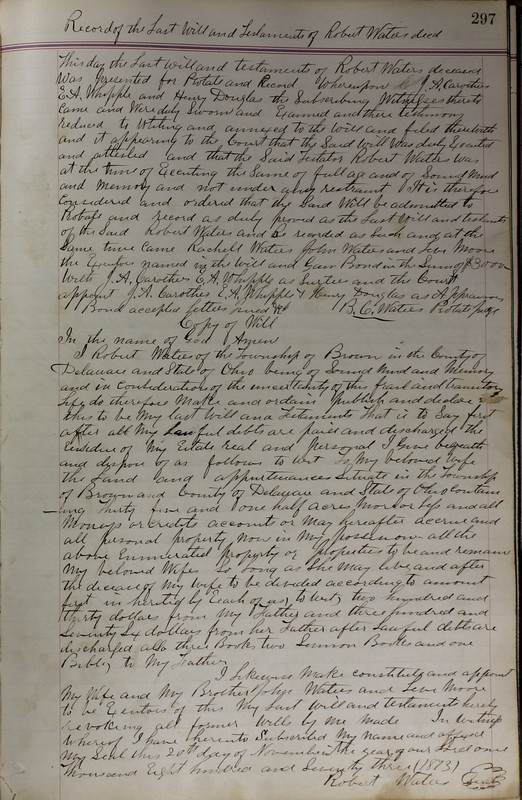 297
Record of the Last Will and Testaments of Robert Waters decd
This day the Last Will and testaments of Robert Waters deceased
Was presented for Probate and Record Whereupon J. A. Carothers
E. A. Whipple and Henry Douglas the Subscribing Witnesses thereto
Came and Were duly Sworn and Examed and there testimony
reduced to Writing and annexed to the Will and filed therewith
and it appearing to the Court that the Said Will was duly Executed
and attested and that the Said Testator Robert Waters was
at the time of Executing the Same of full age and of Sound Mind
and Memory and not under any restraint It is therefore
Considered and ordered that the Said Will be admitted to
Probate and record as duly proved as the Last Will and testaments
of the Said Robert Waters and be recorded as Such and at the
Same time Came Rachell Waters John Waters and Levi Moore
the Executors named in the Will and Gave Bond in the Sum of $3000
With J. A. Carothers E. A. Whipple as Surties and the Court
appoint J. A. Carothers E. A. Whipple & Henry Douglas as Appraisors
Bond accepted letters issued &c B. C. Waters Probate Judge
Copy of Will
In the name of God Amen
I Robert Waters of the Township of Brown in the County of
Delaware and State of Ohio being of Sound Mind and Memory
and in Consideration of the uncertainty of this frail and transitory
Life do therefore Make and ordain publish and declare
this to be My last Will and Testaments That is to Say first
after all My Lawful debts are paid and discharged the
residue of My Estate real and personal I Give bequeath
and dispose of as follows to wit To My beloved wife
the Land and appurtenances Situate in the Township
of Brown and County of Delaware and State of Ohio Contain
ing Thirty five and one half acres More or less and all
Moneys or Credits accounts or May hereafter accrue and
all personal property now in My possession all the
above Enumerated property or properties to be and remain
My beloved Wifes So long as She May live and after
the decease of My Wife to be divided according to amount
first in herited by Each of us, to wit, two hundred and
thirty dollars from My Father and three hundred and
Seventy Six dollars from her Father after Lawful debts are
discharged also three Books two Sermon Books and one
Bible, to My Father,
I Likewise Make constitute and appoint
My Wife and My Brother John Waters and Levi Moore
to be Executors of this My Last Will and testament hereby
revoking all former Wills by me Made In Witness
Whereof I have hereunto Subscribed My name and affixed
My Seal this 20th day of November The year of our Lord one
Thousand Eight hundred and Seventy three (1873)
Robert Waters Seal